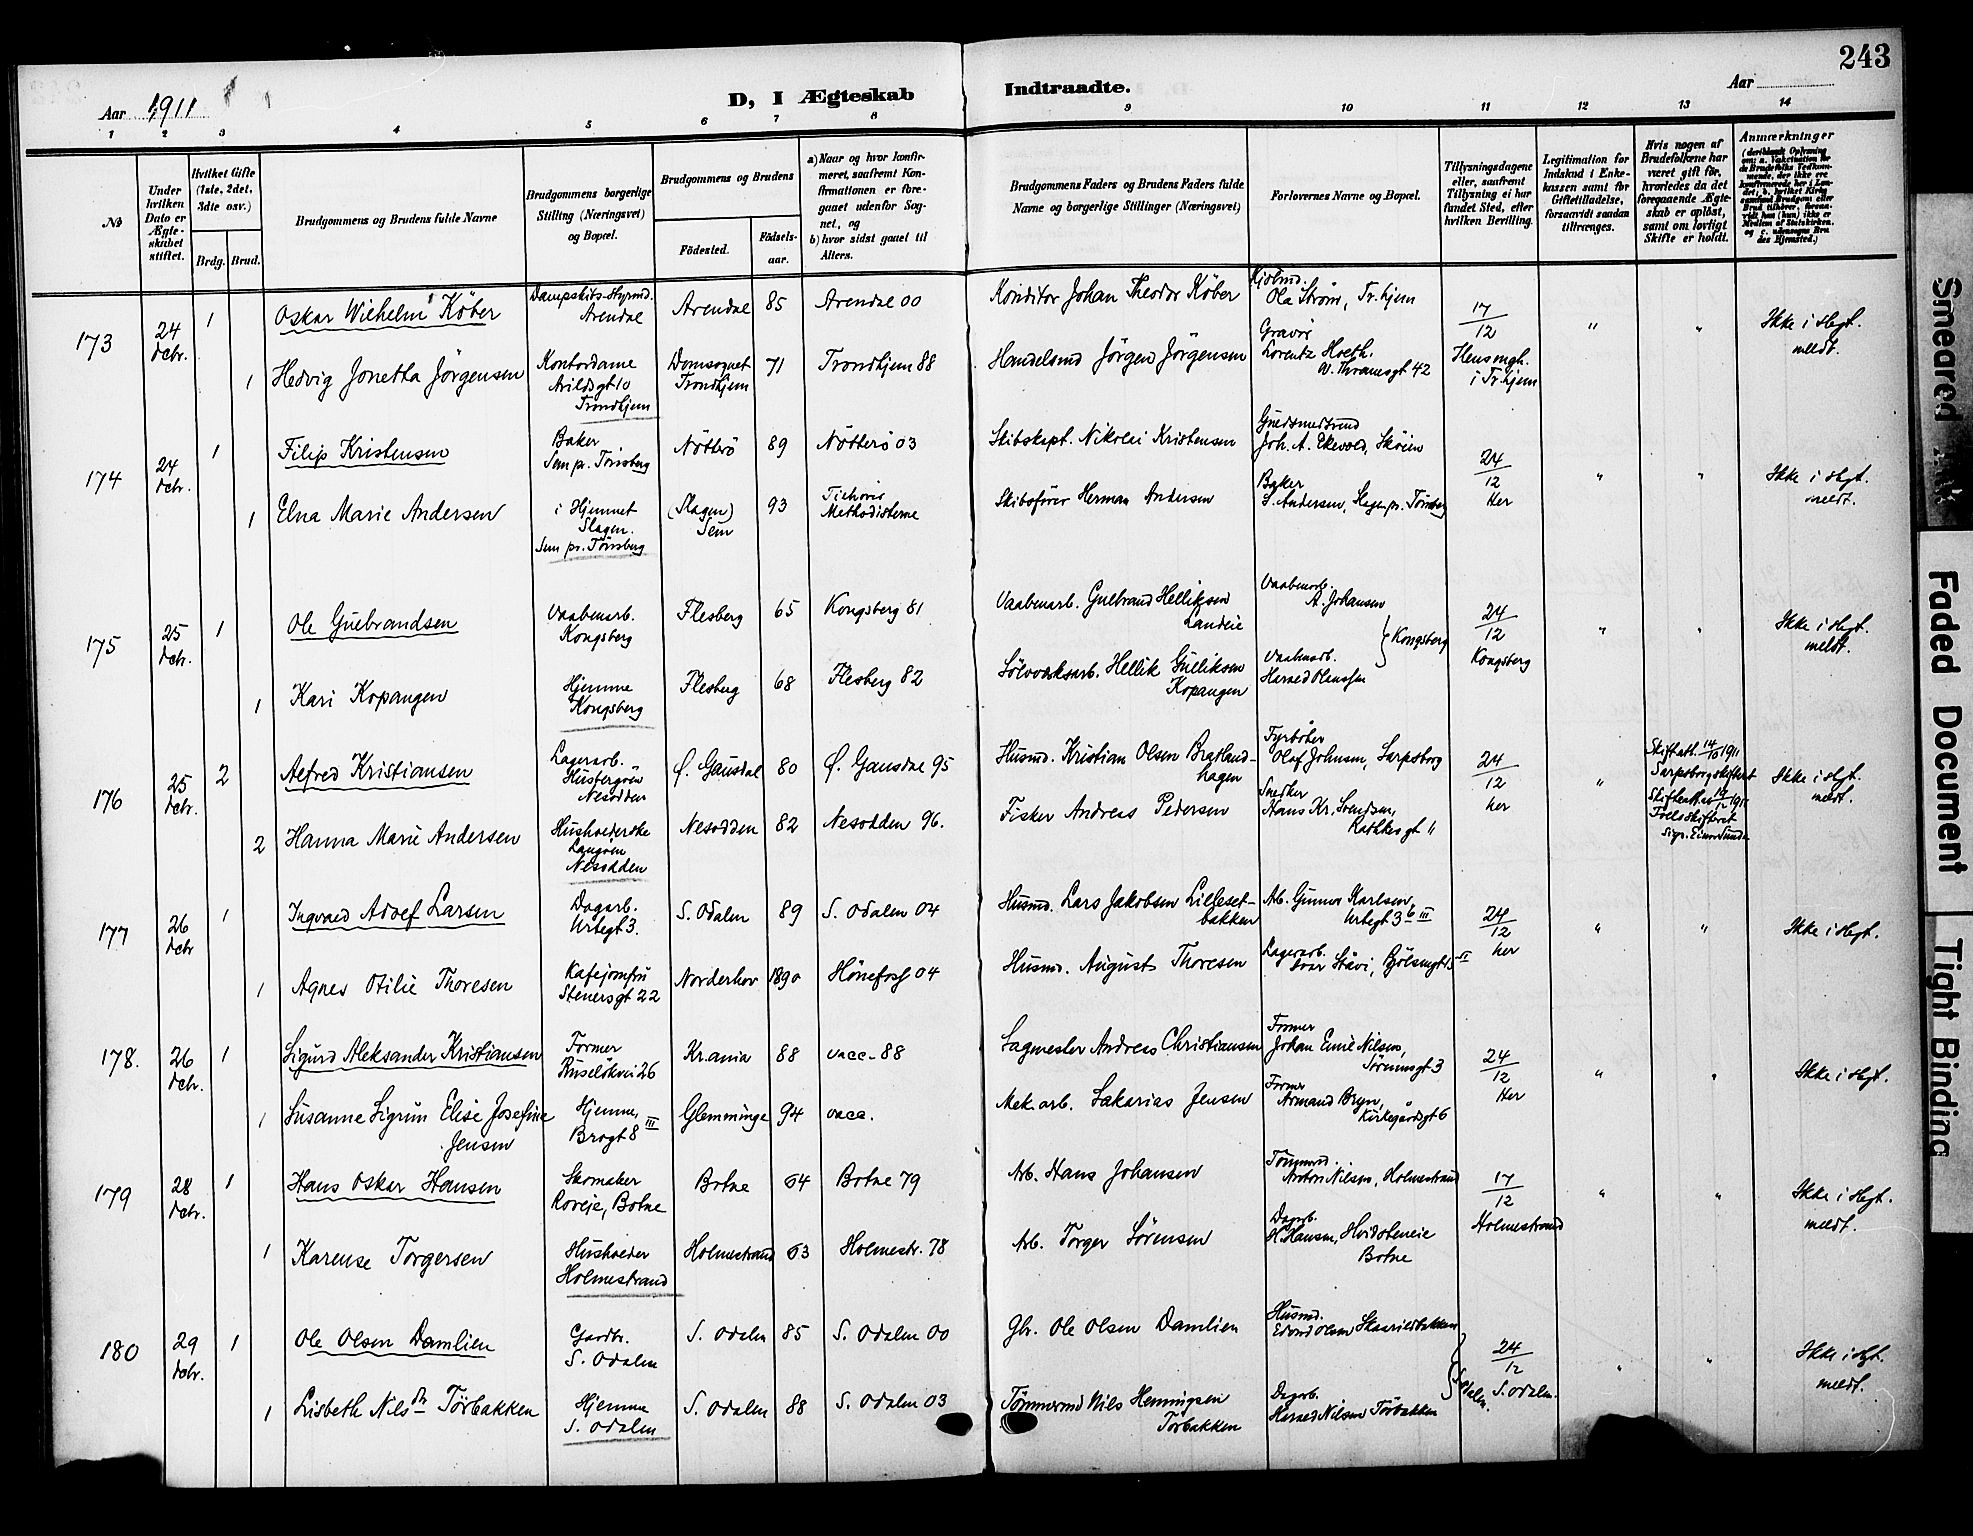 243
Aar 1911
D, I Ægteskab Indtraadte.
Aar
1 2 3 4 5 6 7 8 9 10 11 12 13 14
No
Under hvilken Dato er Ægteskabet stiftet.
Hvilket Gifte (1ste, 2det, 3die osv.)
Brdg. Brud.
Brudgommens og Brudens fulde Navne
Brudgommens borgerlige Stilling (Næringsvei) og Bopæl.
Brudgommens og Brudens
Fødested. Fødselsaar.
a) Naar og hvor konfirmeret, saafremt Konfirmationen er foregaaet udenfor Sognet, og
b) hvor sidst gaaet til Alters.
Brudgommens Faders og Brudens Faders fulde Navne og borgerlige Stillinger (Næringsvei)
Forlovernes Navne og Bopæl.
Tillysningsdagene eller, saafremt Tillysning ei har fundet Sted, efter hvilken Bevilling.
Legitimation for Indskud i Enkekassen samt for Giftetilladelse, forsaavidt saadan tiltrænges.
Hvis nogen af Brudefolkene har været gift før, hvorledes da det foregaaende Ægteskab er opløst, samt om lovligt Skifte er holdt.
Anmærkninger
173 24 dcbr. 1 Oskar Wilhelm Köber Dampskibs-Styrmd. Arendal Arendal 85 Arendal 00 Konditor Johan Theodor Köber Kjöbmd. Ola Ström, Tr.hjem 17/12 " " Ikke i slegt. meldt.
1 Hedvig Jonetta Jörgensen Kontordame Arildsgt 10 Trondhjem Domsognet Trondhjem 71 Trondhjem 88 Handelsmd Jörgen Jörgensen Gravör Lorentz Hoeth. W. Thranesgt 42 i Tr.hjem
174 24 dcbr. 1 Filip Kristensen Baker Sem pr. Tönsberg Nötterö 89 Nötterö 03 Skibskapt. Nikolai Kristensen Joh. A. Ekevold, Sköien 24/12 Her " " Ikke i slegt. meldt.
1 Elna Marie Andersen i Hjemmet Slagen. Sem pr. Tönsberg (Slagen) Sem 93 Tilhörer Methodisterne Skibsförer Herman Andersen Baker S. Andersen, Slagen pr. Tönsberg
175 25 dcbr. 1 Ole Gulbrandsen Vaabenarb. Kongsberg Flesberg 65 Kongsberg 81 Vaabenarb. Gulbrand Helliksen Landeie Vaabenarb. A. Johansen Kongsberg 24/12 Kongsberg " " Ikke i slegt. meldt.
1 Kari Kopangen Hjemme Kongsberg Flesberg 68 Flesberg 82 Sölvverksarb. Hellik Gulliksen Kopangen Vaabenarb.
176 25 dcbr. 2 Alfred Kristiansen Lagerarb. Nesodden Ø. Gausdal 80 Ø. Gausdal 95 Husmd. Kristian Olsen Bratlandhagen Fyrböter Olaf Johnsen, Sarpsborg 24/12 her " Skifteatt. 1911 Sarpsborg skifteret Ikke i slegt. meldt.
2 Hanna Marie Andersen Husholderske Langöen Nesodden Nesodden 82 Nesodden 96. Fisker Andreas Pedersen Snedker Hans Kr. Svendsen, Rathkesgt 11
177 26 dcbr 1 Ingvald Adolf Larsen Dagarb. Urtegt 3. S. Odalen 89 S. Odalen 04 Husmd. Lars Jakobsen Lillesetbakken Arb. Gunnar Karlsen, Urtegt 3 b III 24/12 her " " Ikke i slegt.
1 Agnes Otilie Thoresen Kafejomfru Stenersgt 22 Norderhov 1890 Hönefoss 04 Husmd. August Thoresen Lagerarb.
178. 26 dcbr. 1 Sigurd Aleksander Kristiansen Former Ruselökvei 26 Kr.ania 88 vacc. 88 Sagmester Andreas Christiansen Former Johan Emil Nilsen, 24/12 Her " " Ikke i slegt.
1 Susanne Sigrun Elise Josefine Jensen Hjemme, Brogt 8 III Glemminge 94 vacc. Mek. arb. Sakarias Jensen Former Armand Bryn, Kirkegårdsgt 6
179 28 dcbr. 1 Hans Oskar Hansen Skomaker Roveje, Botne Botne 64 Botne 79 Arb. Hans Johansen Tömmermd. Anton Nilsen, Holmestrand 17/12 Holmestrand " " Ikke i slegt. meldt.
1 Karense Torgersen Husholder Holmestrand Holmestrand 63 Holmestr. 78 Arb. Torger Sörensen Dagarb. H. Hansen, Hvidsteneie Botne
180 29 dcbr. 1 Ole Olsen Damlien Gardbr. S. Odalen S. Odalen 85 S. Odalen 00 Gbr. Ole Olsen Damlien Husmd. 24/12 S. Odalen. " " Ikke i slegt. meldt.
1 Lisbeth Nilsdtr Törbakken Hjemme S. Odalen S. Odalen 88 S. Odalen 03 Tömmermd Nils Henningsen Törbakken Dagarb. Harald Nilsen Törbakken S. Odalen.
Smeared Ink
Faded Document
Tight Binding